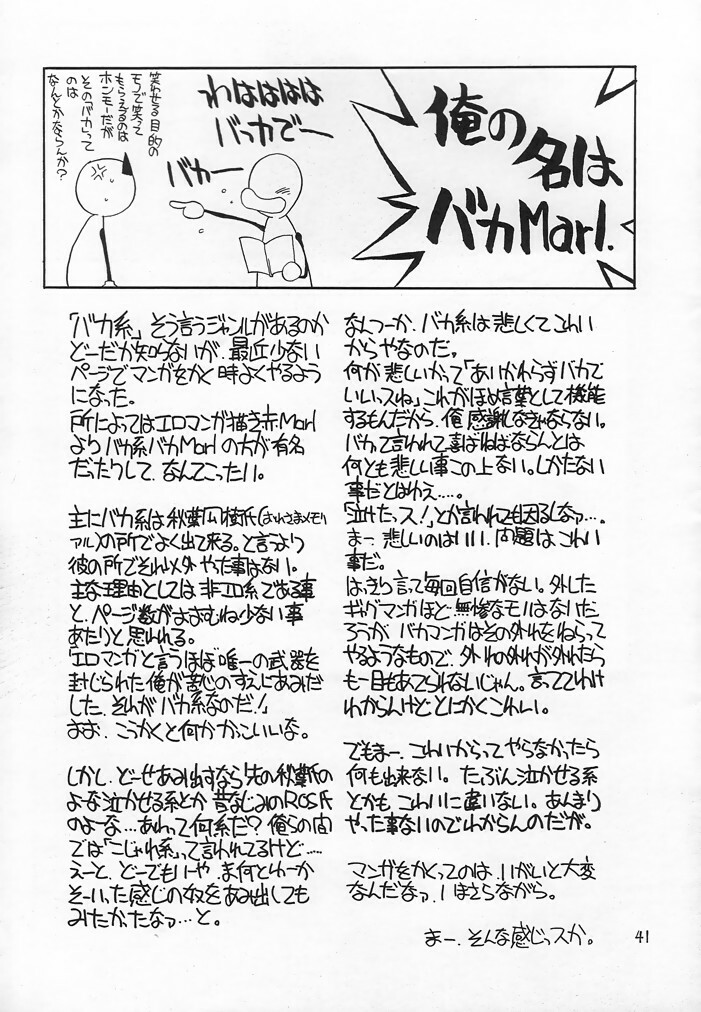 俺の
名は
バカMarl.
わはははは
バッカでー
バカー
笑わせる目的の
モノで笑って
もらえるのは
ホンモーだが
その「バカ」って
のは
なんとかならんか？
「バカ系」そう言うジャンルがあるのか
どーだか知らないが、最近少ない
ページでマンガをかく時よくやるよう
になった。
所によってはエロマンガ描き赤Marl
よりバカ系バカMarlの方が有名
だったりして、なんてこったい。
主にバカ系は秋葉凪樹氏(おれさまメモリ
アル)の所でよく出て来る。と言うより
彼の所でそれ以外やった事はない。
主な理由としては非エロ系である事
と、ページ数がおおむね少ない事
あたりと思われる。
「エロマンガと言うほぼ唯一の武器を
封じられた俺が苦心のすえにあみだ
した、それがバカ系なのだ！」
おお、こうかくと何かかっこいいな。
しかし、どーせあみ出すなら先の秋葉氏の
よーな泣かせる系とか昔なじみのROS氏
のよーな…あれって何系だ？俺らの間
では「こじゃれ系」って言われてるけど……
えーと、どーでもいいや、ま何とゆーか
そーいった感じの奴をあみ出しても
みたかったなァ…と。
なんつーか、バカ系は悲しくてこわい
からやなのだ。
何が悲しいかって「あいかわらずバカで
いいっスね」これがほめ言葉として機能
するもんだから、俺感謝しなきゃならない。
バカって言われて喜ばねばならんとは
何とも悲しい事この上ない。しかたない
事だとはゆえ……。
「泣けたっス！」とか言われても困るしなァ…。
まー、悲しいのはいい、問題はこわい
事だ。
はっきり言って毎回自信がない。外した
ギャグマンガほど無惨なモノはないだ
ろうが、バカマンガはその外れをねらって
やるようなもので、外れの外れが外れたら
も一目もあてられないじゃん。言っててわけ
わからんけどとにかくこわい。
でもまー、こわいからってやらなかったら
何も出来ない。たぶん泣かせる系
とかも、こわいに違いない。あんまり
やった事ないのでわからんのだが。
マンガをかくってのは、いがいと大変
なんだなァ、いまさらながら。
まー、そんな感じっスか。
41